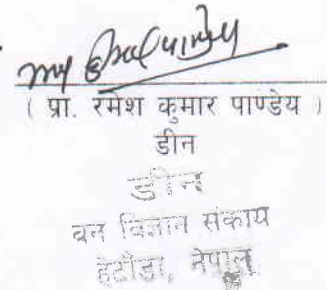 ( प्रा. रमेश कुमार पाण्डेय )
डीन
डीन
वन विज्ञान संकाय
हेटौंडा, नेपाल